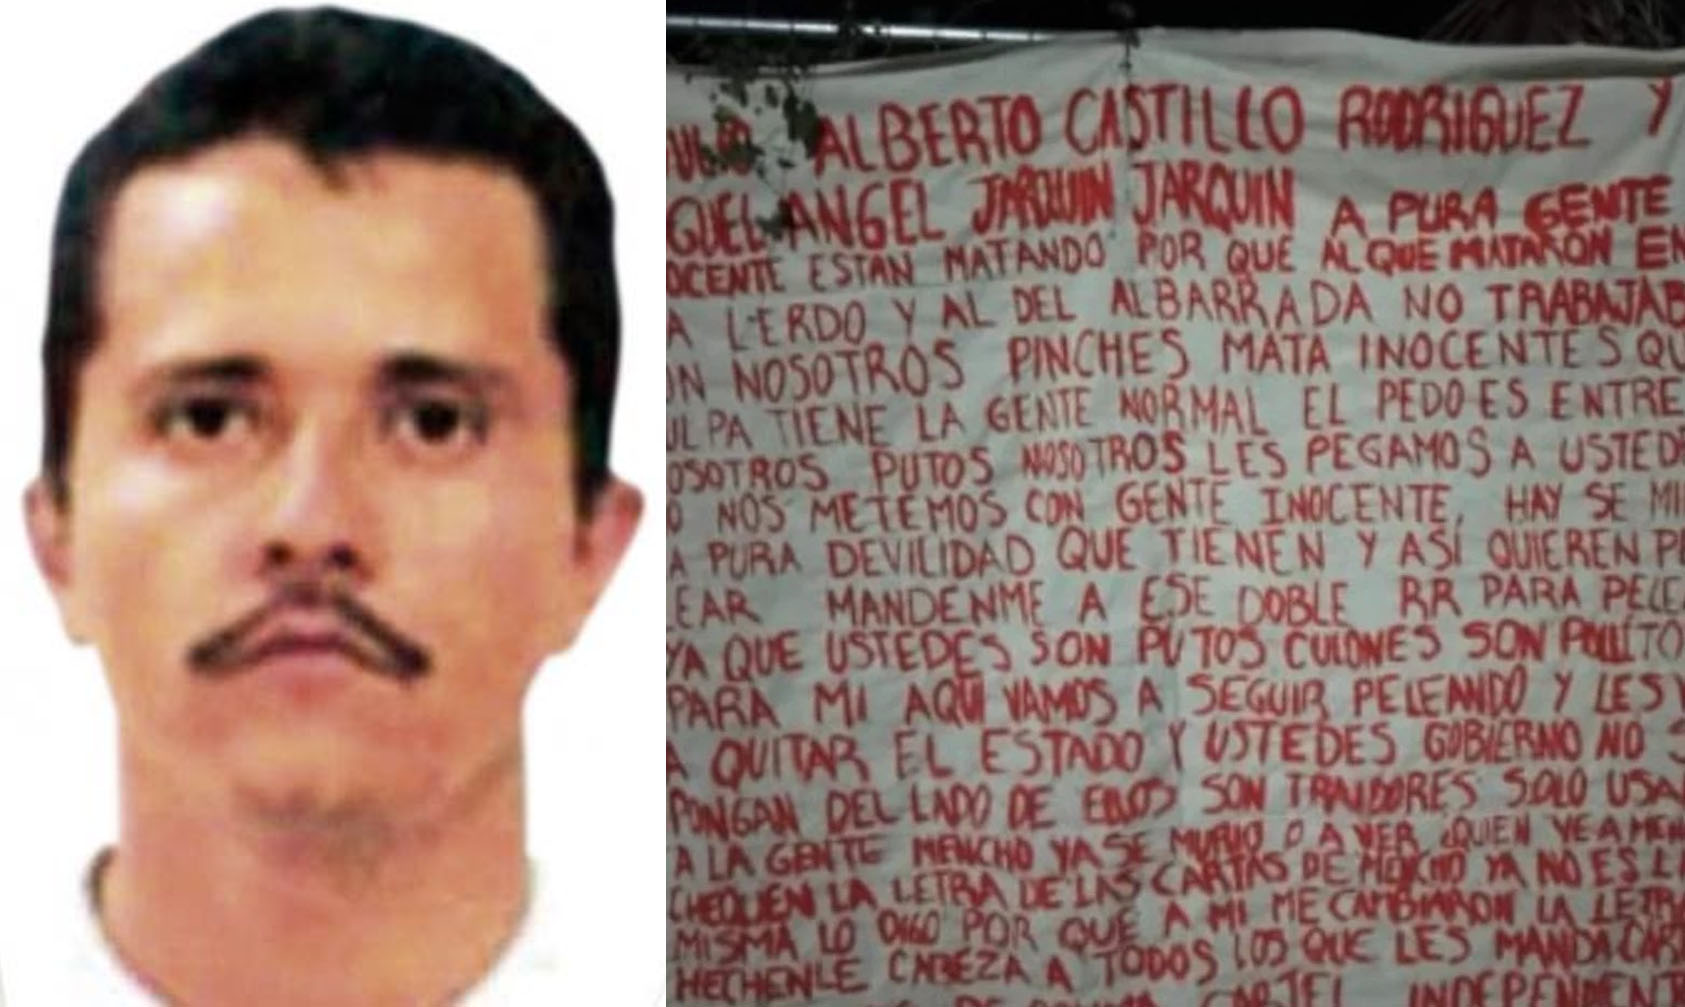 ALBERTO CASTILLO RODRIGUEZ Y
GUEL ANGEL JARQUIN JARQUIN A PURA GENTE
OCENTE ESTAN MATANDO POR QUE AL QUE MATARON EN
A LERDO Y AL DEL ALBARRADA NO TRABAJAB
ON NOSOTROS PINCHES MATA INOCENTES QU
ULPA TIENE LA GENTE NORMAL EL PEDO ES ENTRE
OSOTROS PUTOS NOSOTROS LES PEGAMOS A USTEDE
O NOS METEMOS CON GENTE INOCENTE, HAY SE MI
A PURA DEVILIDAD QUE TIENEN Y ASÍ QUIEREN PE
EAR MANDENME A ESE DOBLE RR PARA PELEA
YA QUE USTEDES SON PUTOS CULONES SON POLLITO
PARA MI AQUI VAMOS A SEGUIR PELEANDO Y LES V
A QUITAR EL ESTADO Y USTEDES GOBIERNO NO S
PONGAN DEL LADO DE EllOS SON TRAIDORES SOLO USA
A LA GENTE MENCHO YA SE MURIO O A VER ¿QUIEN VE A MEN
CHEQUEN LA LETRA DE LAS CARTAS DE MENCHO YA NO ES L
MISMA LO DIGO POR QUE A MI ME CAMBIARON LA LETRA
HECHENLE CABEZA A TODOS LOS QUE LES MANDA CAR
CARTEL INDEPENDIENT